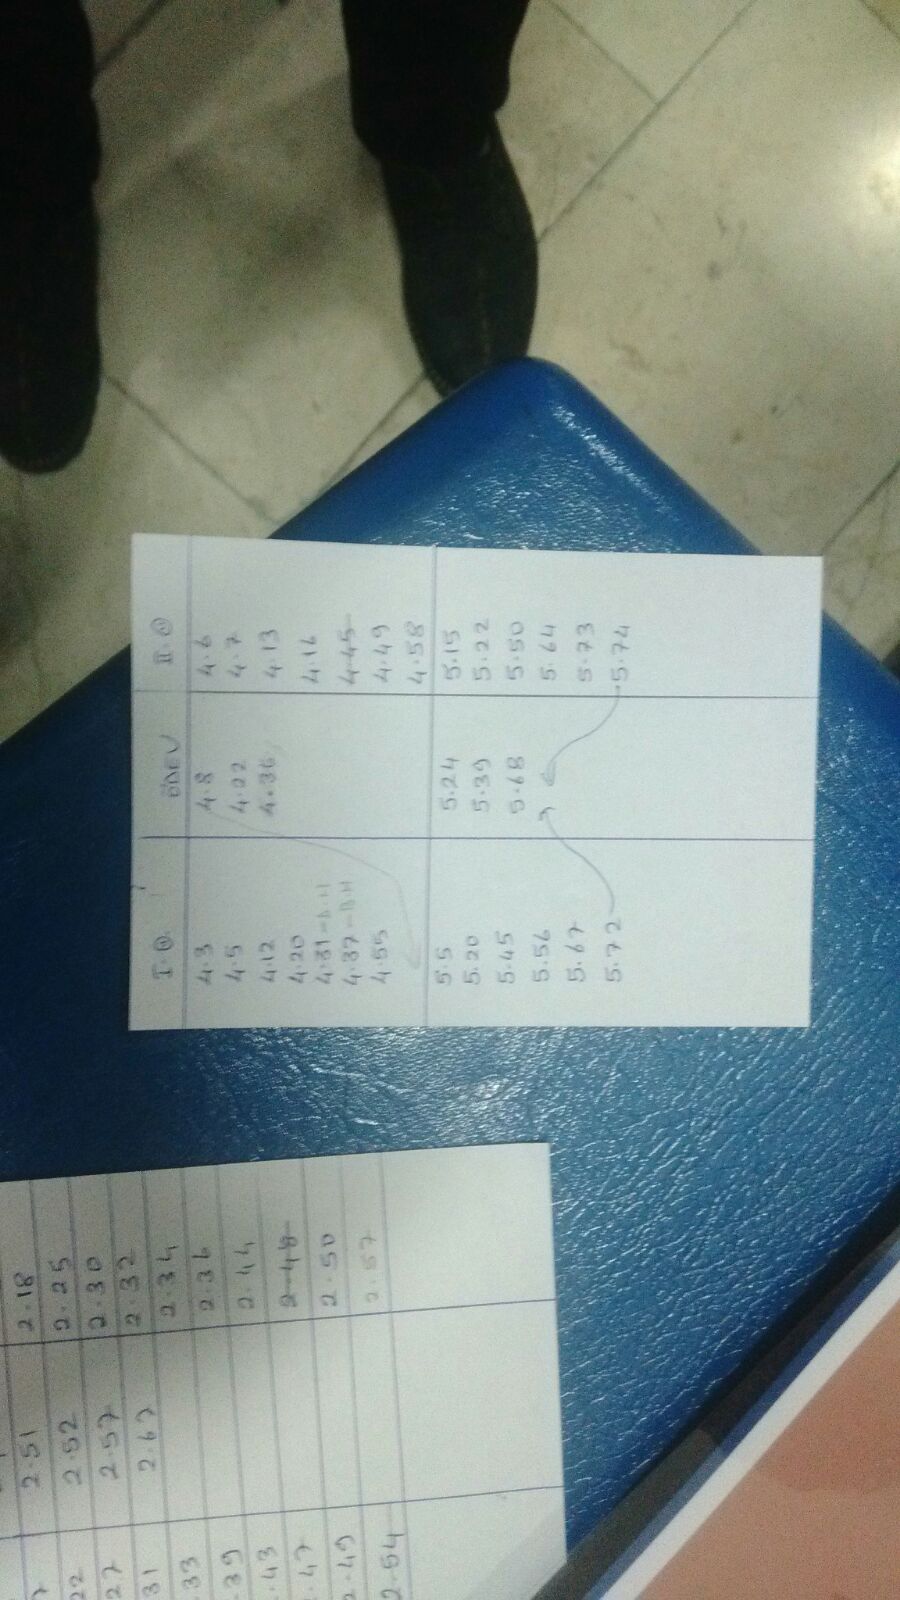 2.51 2.18
22 2.52 2.25
27 2.57 2.30
31 2.67 2.32
.33 2.34
.39 2.36
.43 2.44
.47 2.48
2.49 2.50
2.54 2.57
I.Ö. ÖDEV II.Ö
4.3 4.8 4.6
4.5 4.22 4.7
4.12 4.36 4.13
4.20 4.16
4.31
4.37 - B.H 4.45
4.55 4.49
4.58
5.5 5.24 5.15
5.20 5.39 5.22
5.45 5.68 5.50
5.56 5.64
5.67 5.73
5.72 5.74